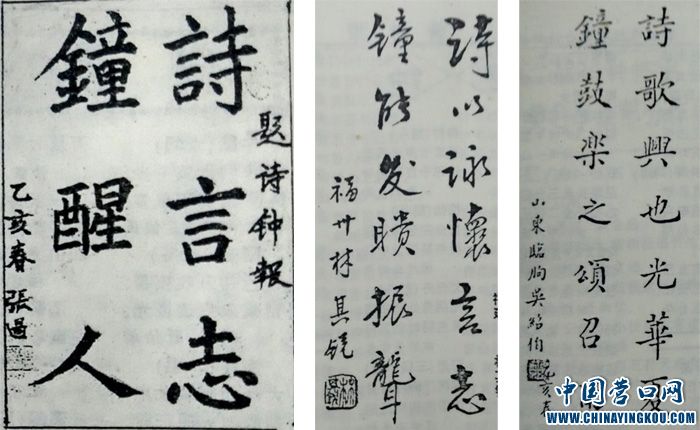 题诗钟報
詩言志
鐘醒人
乙亥春 張過
诗以詠懷言志
鐘能发聵振聾
福州林其锐
詩歌興也光華夏
鐘鼓楽之頌召
山東臨朐吴紹伯
中国营口网
WWW.CHINAYINGKOU.COM